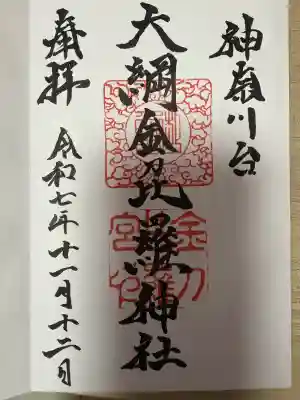 神奈川台
大綱金刀比羅神社
奉拝
令和七年十一月十二日